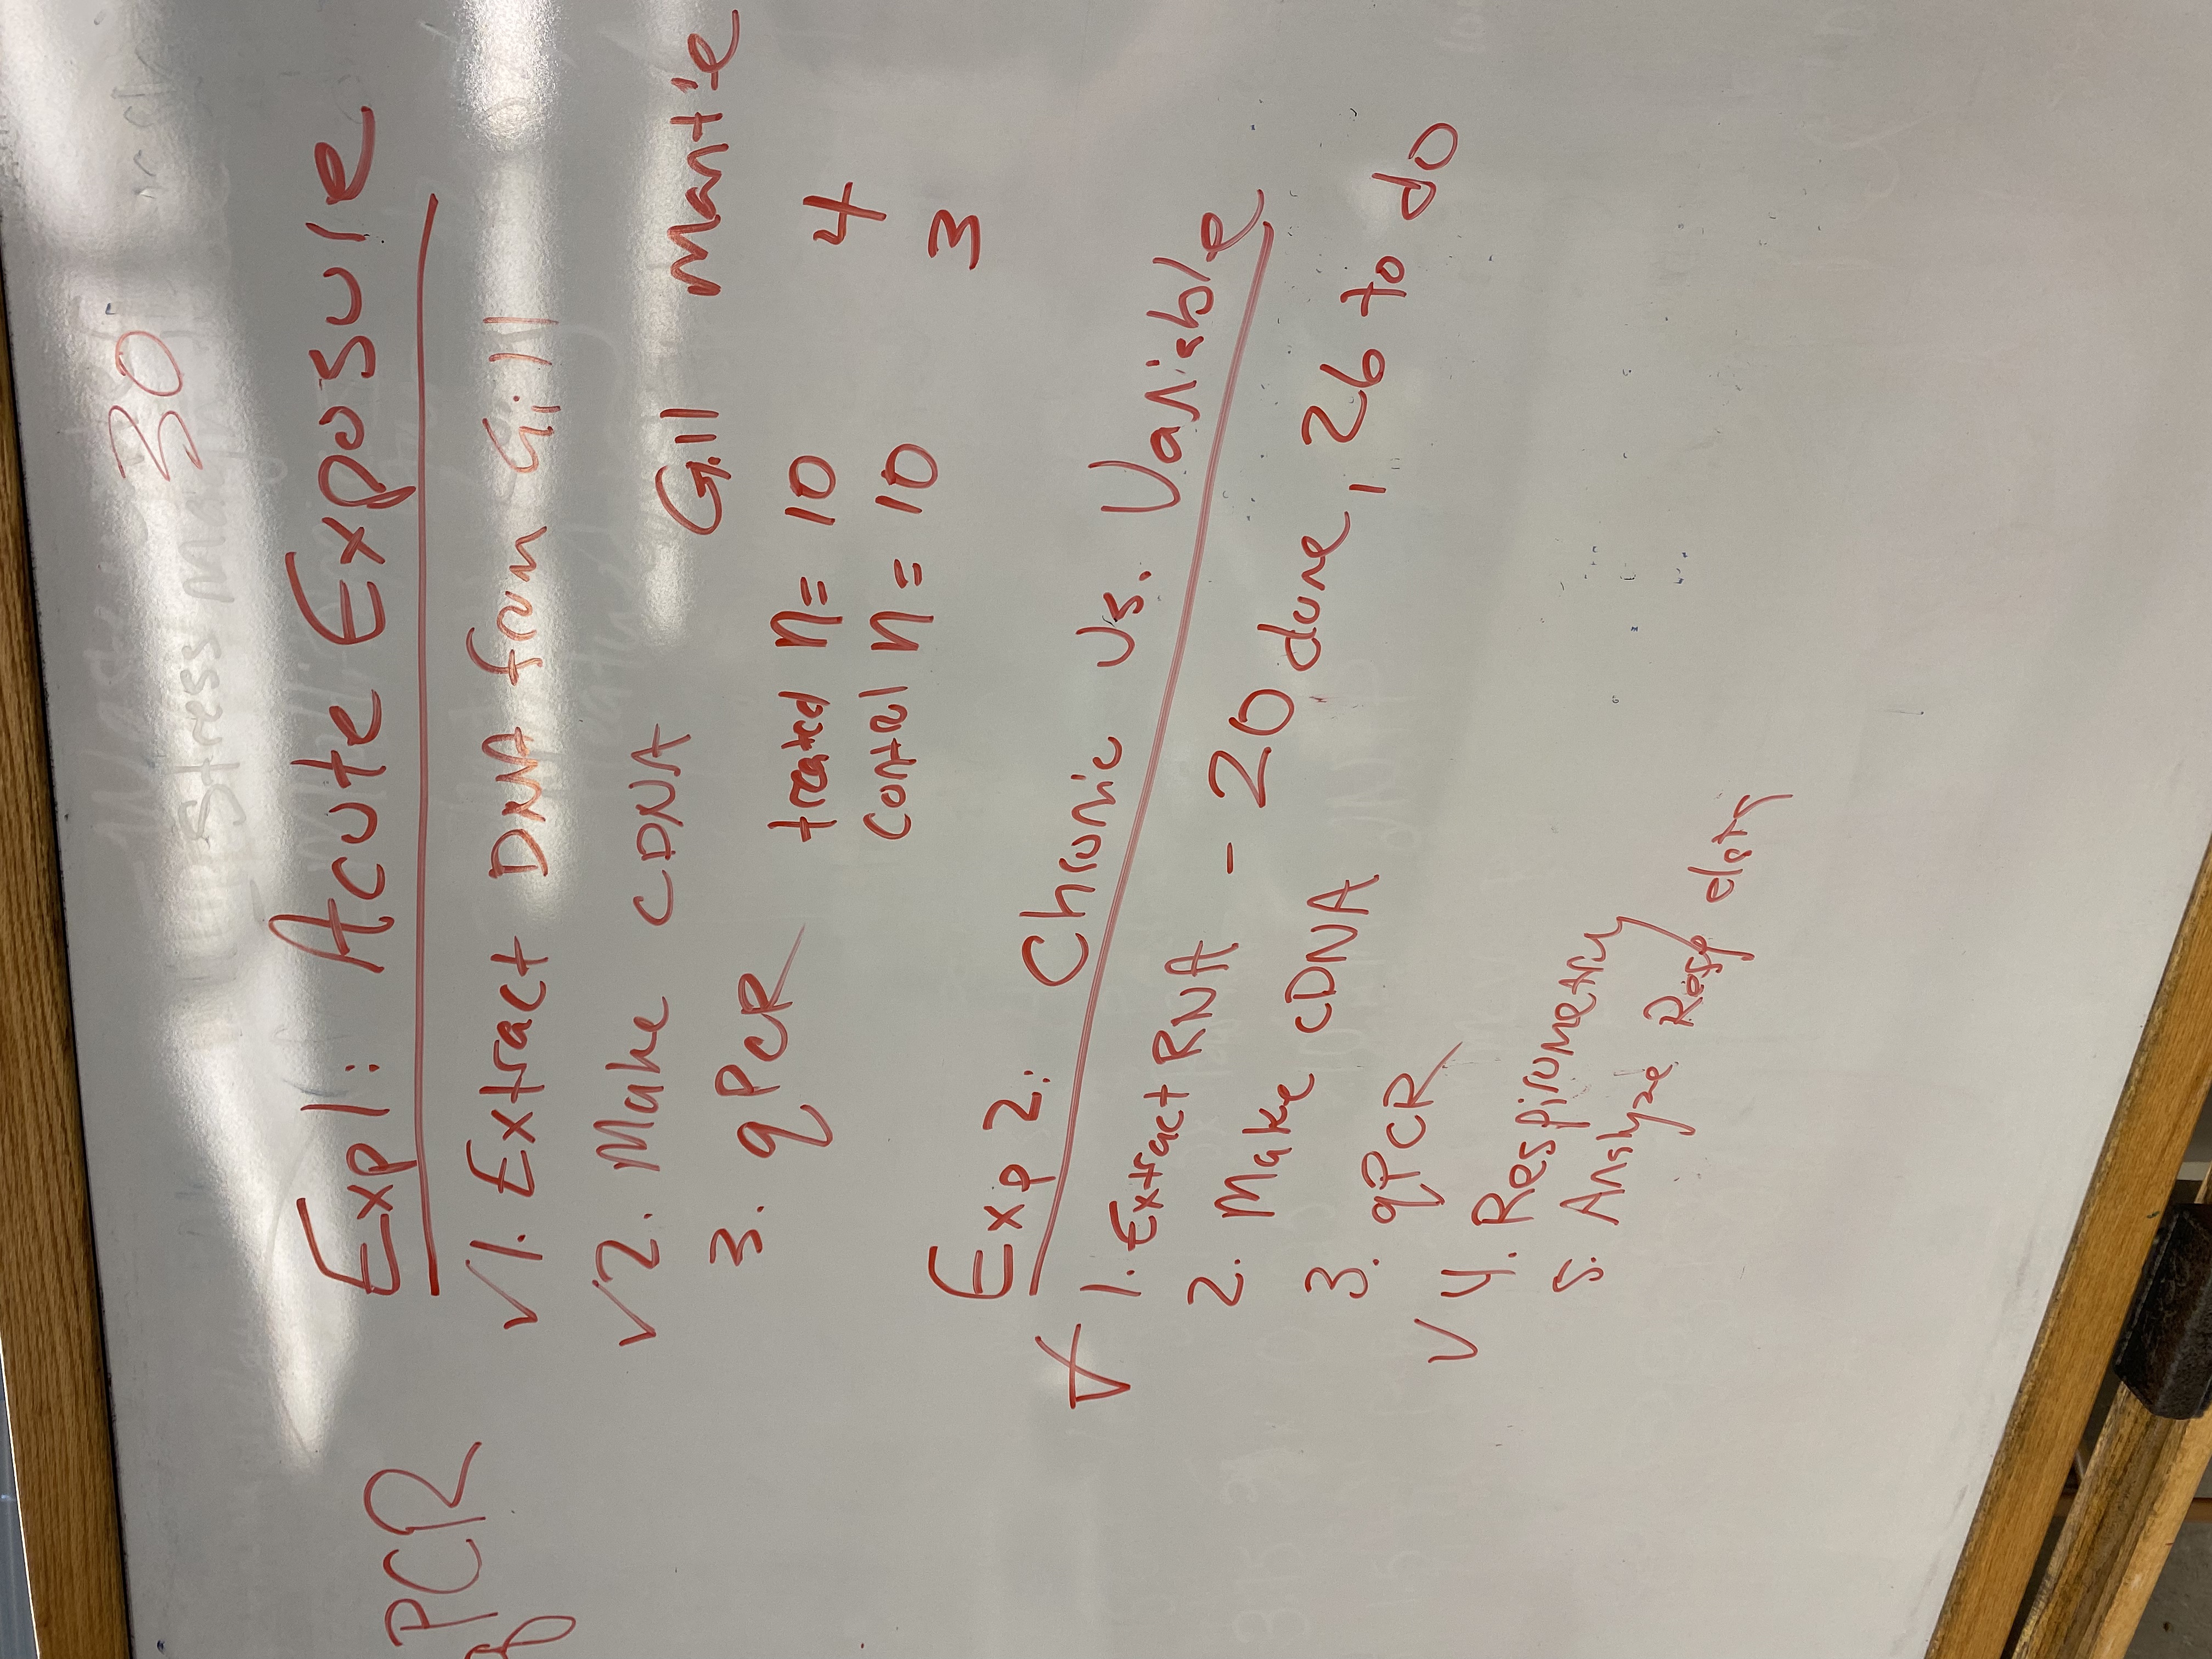 30
qPCR
Exp1: Acute Exposure
✓1. Extract DNA from Gill
✓2. Make cDNA
3. qPCR
Gill Mantle
treated n= 10 4
Control n= 10 3
Exp 2: Chronic vs. Variable
✓ 1. Extract RNA - 20 done, 26 to do
2. Make cDNA
3. qPCR
✓ 4. Respirometry
5. Analyze Resp data
stress